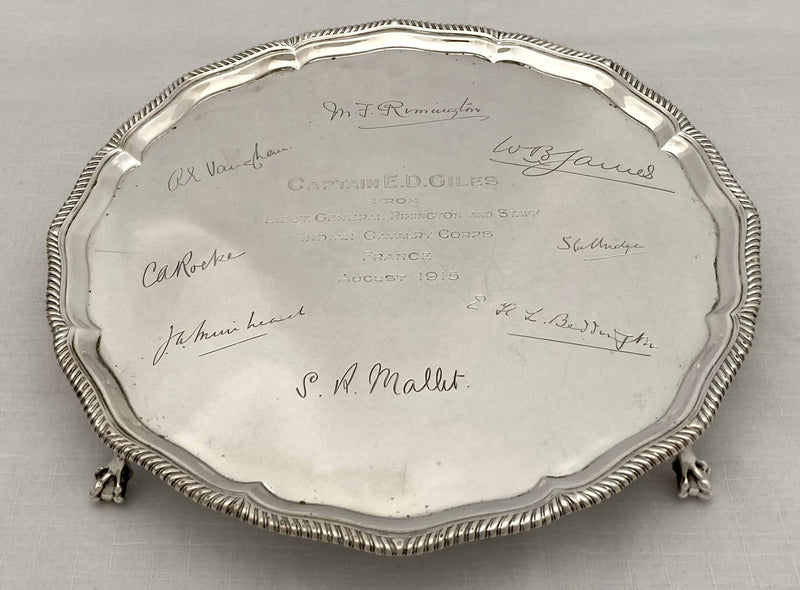 M. F. Rimington
R E Vaughan.
W B James
CAPTAIN E.D. GILES
FROM
LIEUT. GENERAL RIMINGTON AND STAFF
INDIAN CAVALRY CORPS
FRANCE
AUGUST 1915
Stalbridge
C A Rocke
J. A. Muirhead
E H L. Beddington
S. A. Mallet.